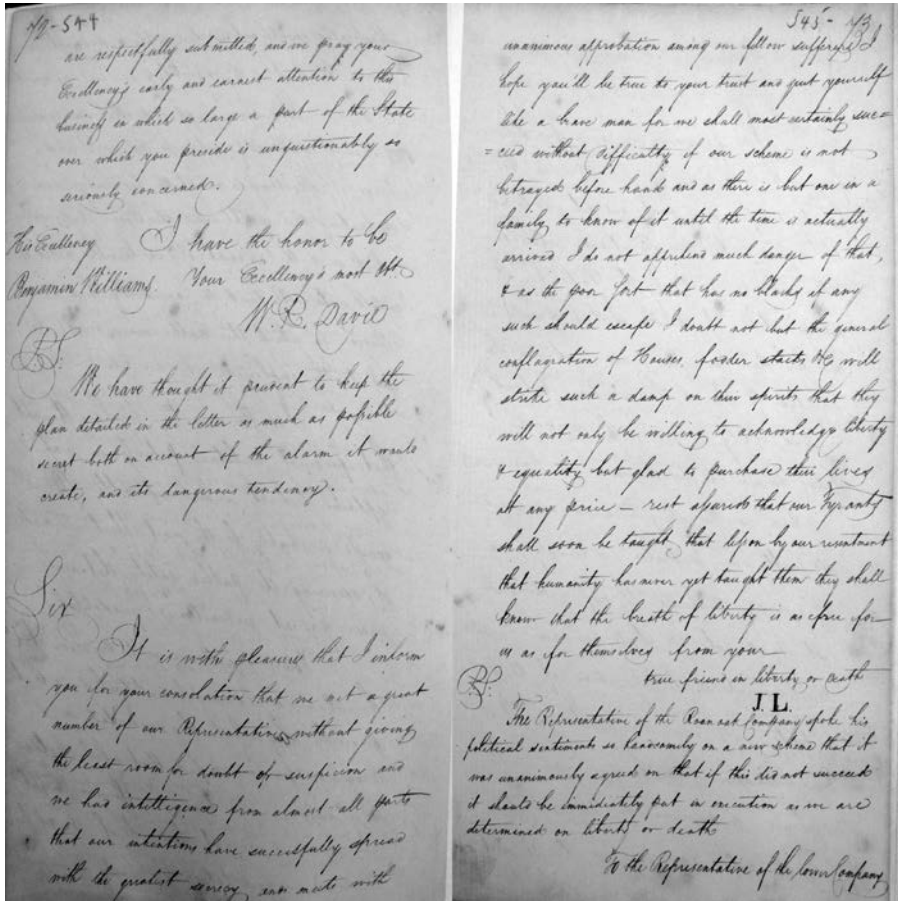 72-544
are respectfully submitted, and we pray your
Excellency's early and earnest attention to this
business in which so large a part of the State
over which you preside is unquestionably so
seriously concerned.
His Excellency
Benjamin Williams.
I have the honor to be
Your Excellency's most Obt
W. R. Davie
P.S.
We have thought it prudent to keep the
plan detailed in the letter as much as possible
secret both on account of the alarm it would
create, and its dangerous tendency.
Sir
It is with pleasure that I inform
you for your consolation that we met a great
number of our Representatives without giving
the least room for doubt of suspicion and
we had intelligence from almost all parts
that our intentions have successfully spread
with the greatest secrecy and meets with
545-73
unanimous approbation among our fellow sufferers I
hope you'll be true to your trust and yourself
like a brave man for we shall most certainly suc=
=ceed without difficulty if our scheme is not
betrayed before hand and as there is but one in a
family to know of it until the time is actually
arrived I do not apprehend much danger of that,
& as the poor sort that has no blacks if any
such should escape I doubt not but the general
conflagration of Houses, fodder stacks &c will
strike such a damp on their spirits that they
will not only be willing to acknowledge liberty
& equality but glad to purchase their lives
at any price — rest assured that our Tyrants
shall soon be taught that lesson by our resentment
that humanity has never yet taught them they shall
know that the breath of liberty is as free for
us as for themselves from your
true friend in liberty or death
J.L.
P.S.
The Representative of the Roanoak Company spoke his
political sentiments so handsomely on a new scheme that it
was unanimously agreed on that if this did not succeed
it should be immidiately put in execution as we are
determined on liberty or death
To the Representative of the lower Company